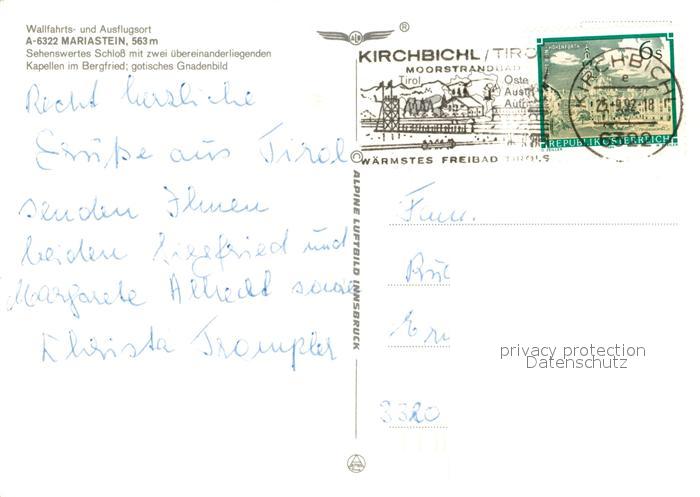 Wallfahrts- und Ausflugsort
A-6322 MARIASTEIN, 563 m
Sehenswertes Schloß mit zwei übereinanderliegenden
Kapellen im Bergfried; gotisches Gnadenbild
Recht herzliche
Grüße aus Tirol
senden Ihnen
beiden Siegfried und
Margarete Albrecht sowie
Christa Trompler
ALPINE LUFTBILD INNSBRUCK
®
KIRCHBICHL / TIROL
MOORSTRANDBAD
Tirol
WÄRMSTES FREIBAD TIROLS
6 S
REPUBLIK ÖSTERREICH
KIRCHBICHL
e
25.-9.92-18
6322
Fam.
3320
privacy protection
Datenschutz